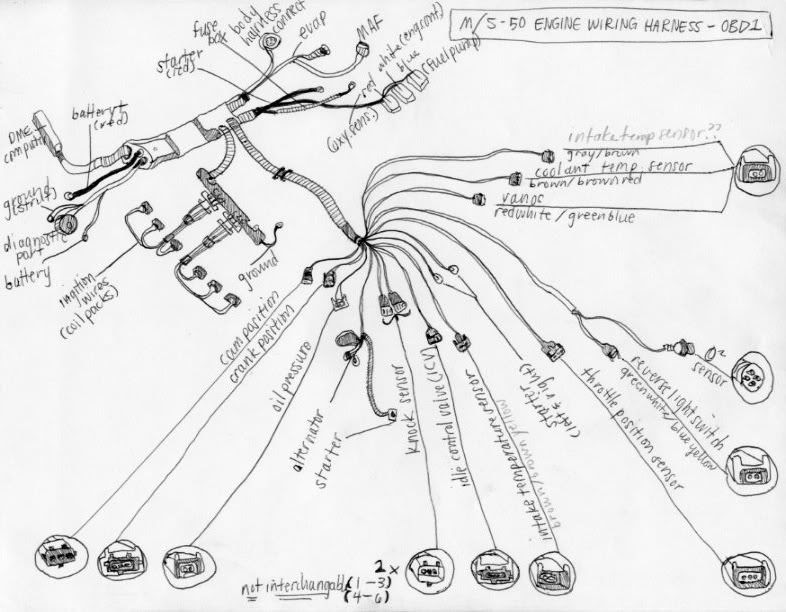 M/S-50 ENGINE WIRING HARNESS - OBD1
body
harness
connect
fuse
box
evap
MAF
starter
(red)
red white (eng mnt)
blue
(fuel pump)
(oxy.sens.)
battery+
(red)
DME
computer
ground
(struts)
diagnostic
port
battery
ignition
wires
(coil packs)
ground
intake temp sensor??
gray/brown
coolant temp sensor
brown/brown red
vanos
red white / green blue
cam position
crank position
oil pressure
alternator
starter
knock sensor
idle control valve (ICV)
intake temperature sensor
brown/brown yellow
starter
(left & right)
throttle position sensor
reverse light switch
green white/blue yellow
O2
sensor
2x
not interchangable (1-3)
(4-6)